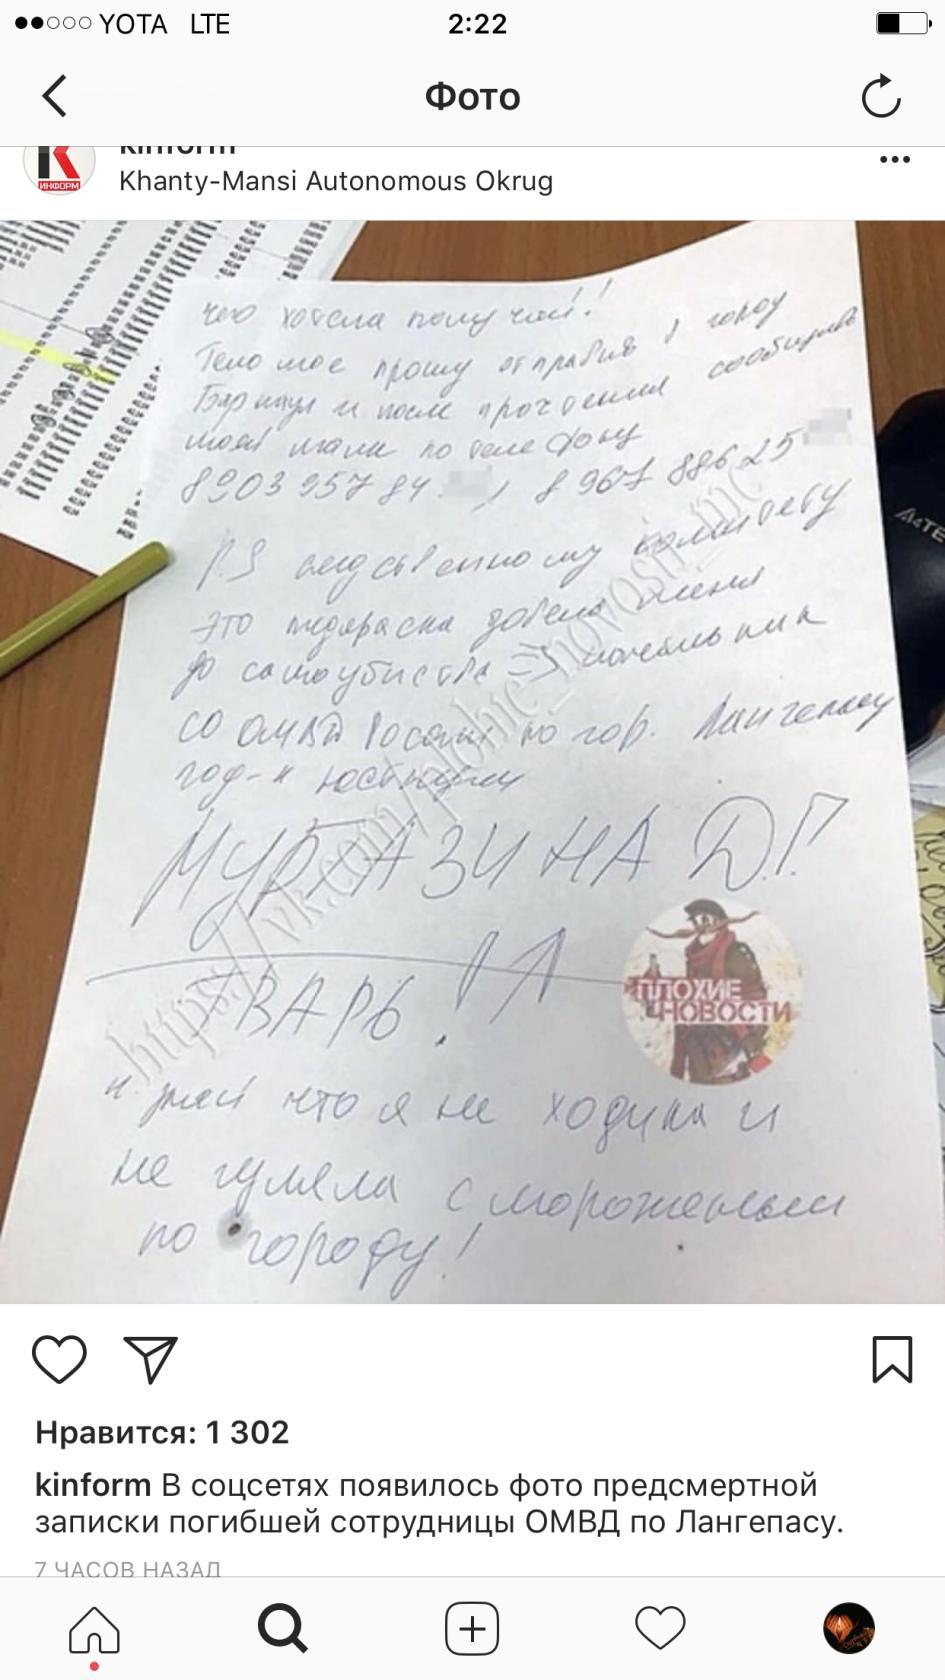 YOTA LTE 2:22
Фото
kinform
ИНФОРМ
Khanty-Mansi Autonomous Okrug
чего хотела получай!!
Тело мое прошу отправить в город
Барнаул и после прочтения сообщить
моей маме по телефону
8903 957 84 , 8 967 886 25
P.S следственному комитету
это подпраска довела меня
до самоубиства => начальник
СО ОМВД России по гор. Лангепасу
под-к юстиции
МУРТАЗИНА Д.Г.
ТВАРЬ! А
и знай что я не ходила и
не гуляла с мороженым
по городу!
https://vk.com/plohie_novosti_inc
ПЛОХИЕ
НОВОСТИ
A4TE
Нравится: 1 302
kinform В соцсетях появилось фото предсмертной
записки погибшей сотрудницы ОМВД по Лангепасу.
7 ЧАСОВ НАЗАД